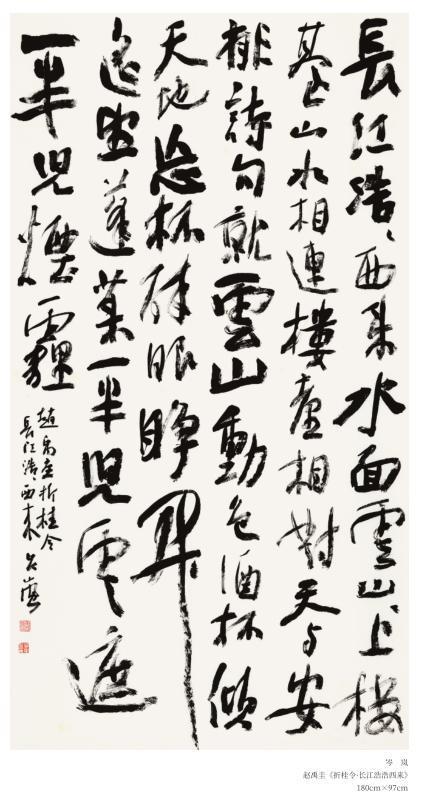 長江浩〻西來水面雲山〻上樓
臺山水相連樓臺相對天与安
排詩句就雲山動色酒杯傾
天地忘怀醉眼睜開
遙望蓬萊一半兒雲遮
一半兒煙霾
趙禹圭折桂令
長江浩〻西來 岑嵐
岑 岚
赵禹圭《折桂令·长江浩浩西来》
180cm×97cm